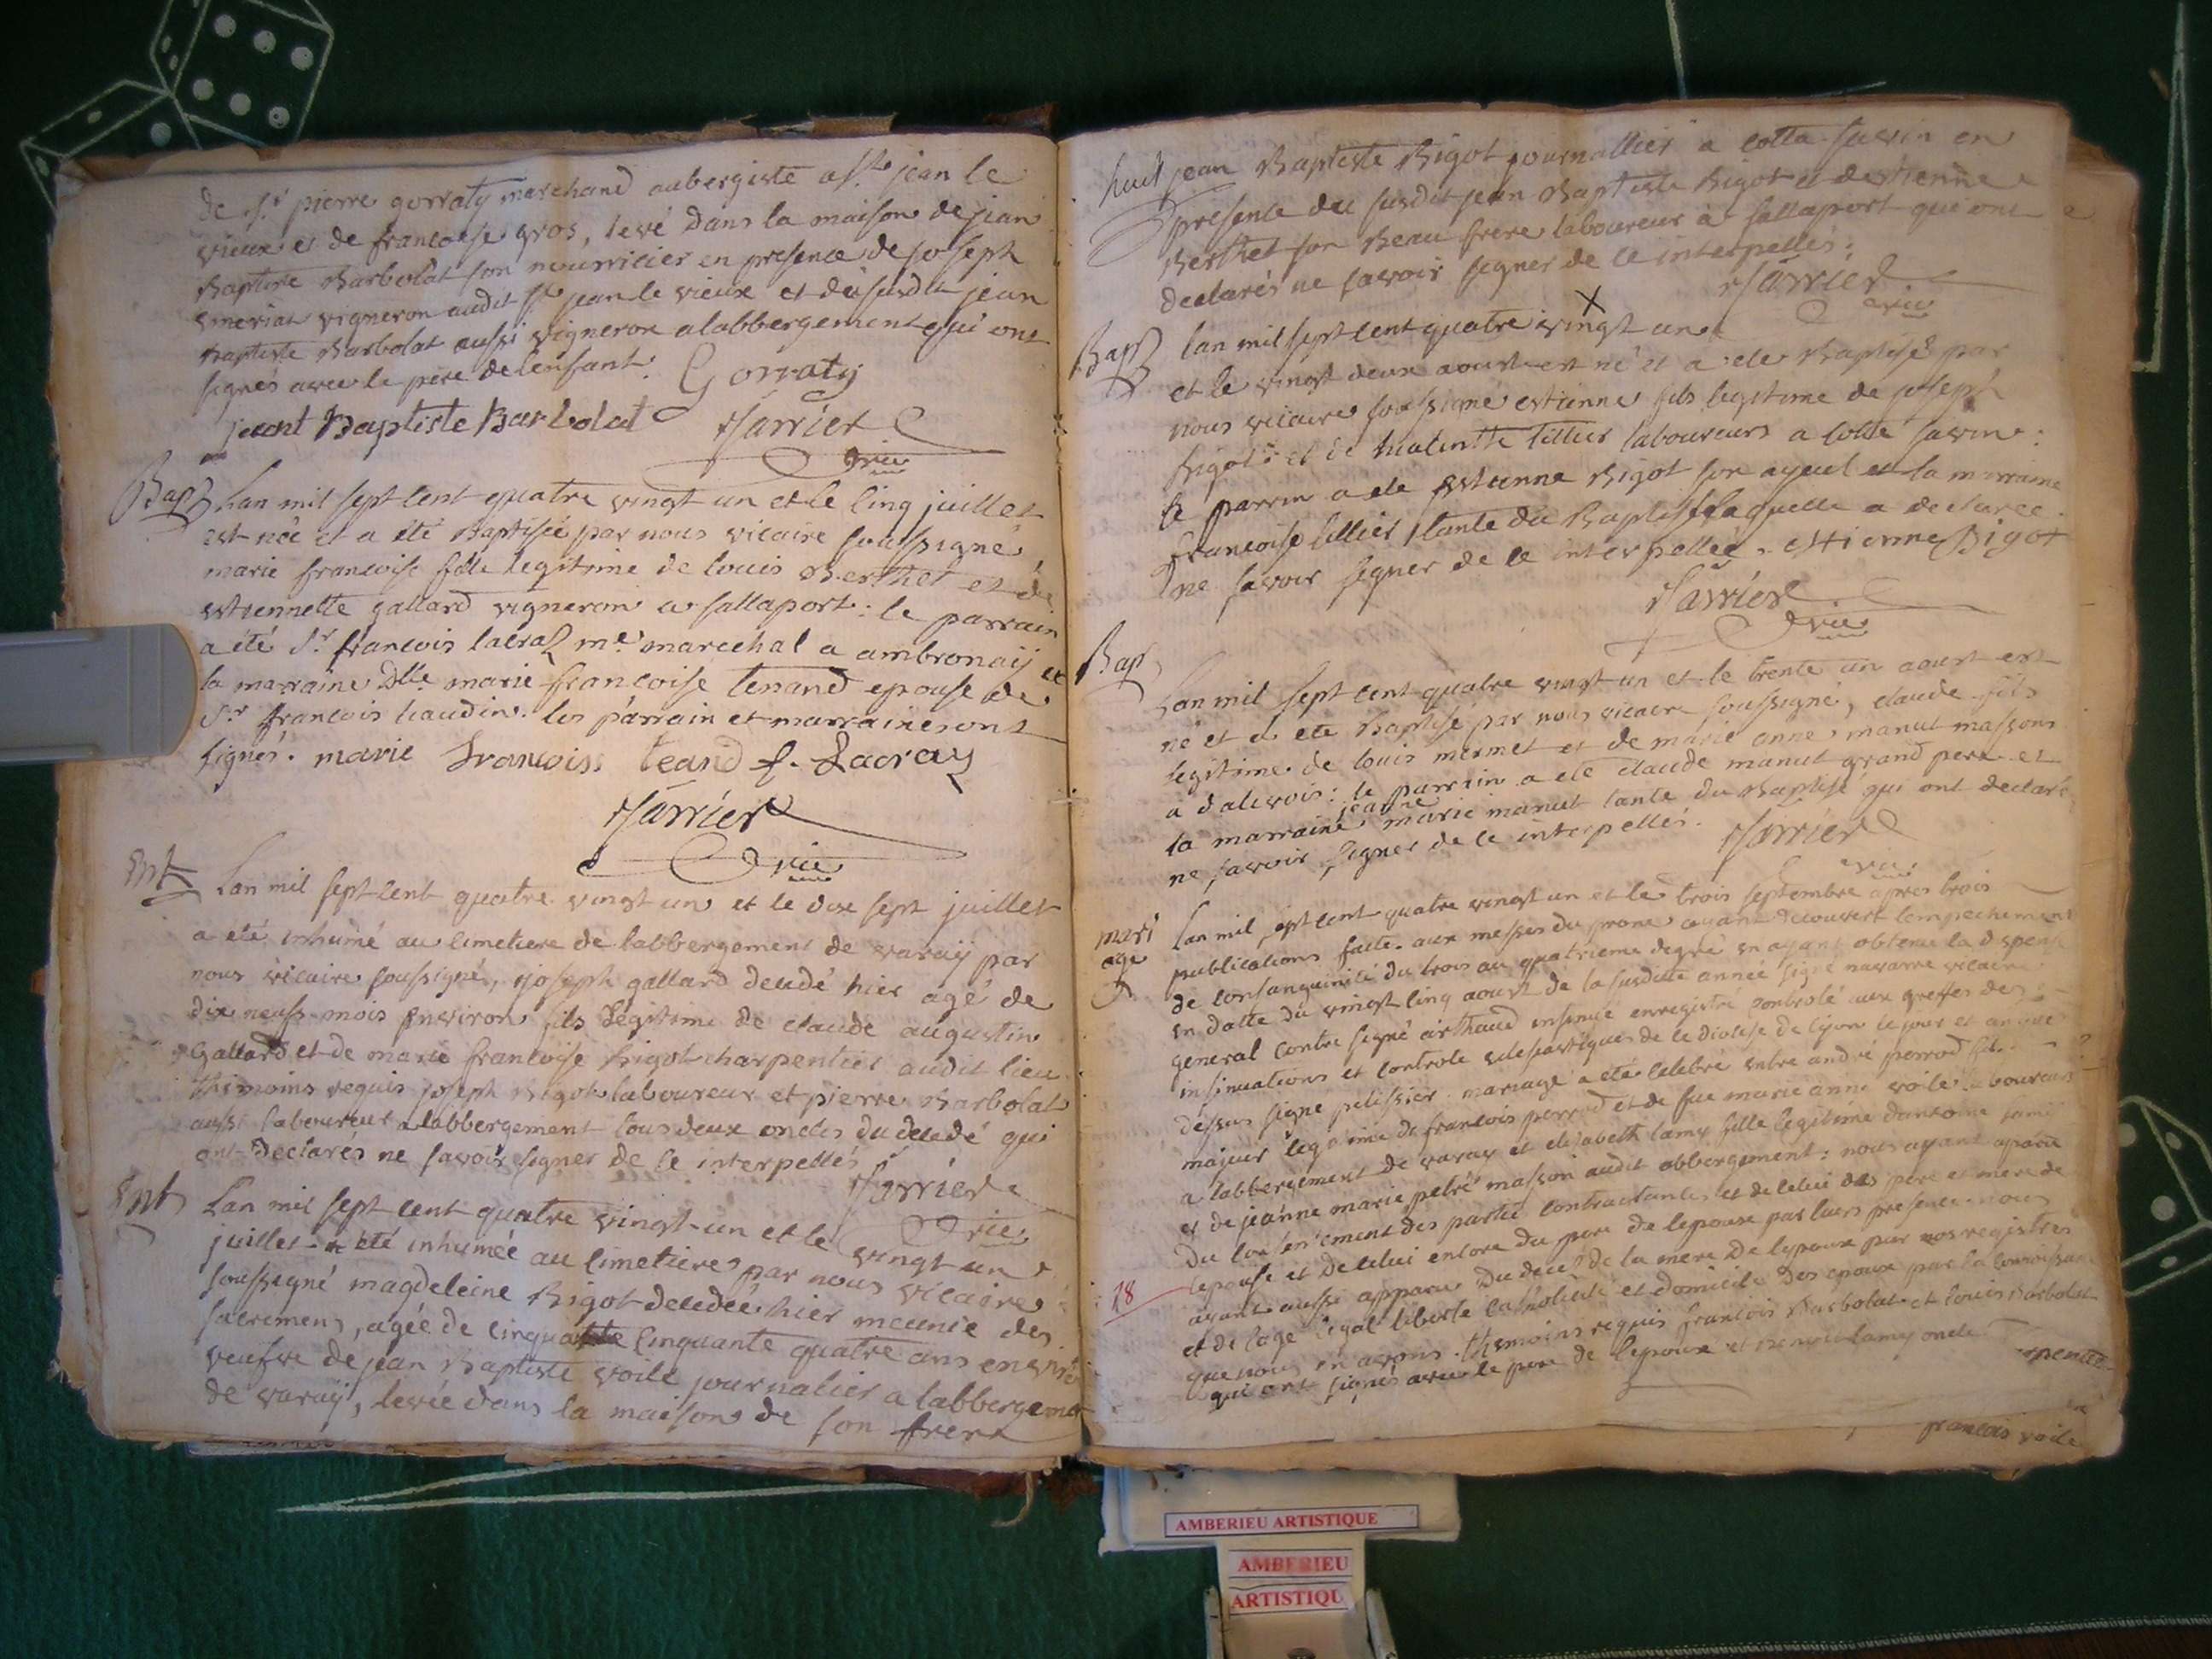 de Sr pierre gorraty marchand aubergiste a St jean le
vieux et de francoise gros, levé dans la maison de jean
Baptiste Barbolat son nourricier en presence de joseph
vigneron audit St jean le vieux et du susdit jean
Baptiste Barbolat aussi vigneron a labbergement qui ont
signés avec le père de lenfant. Gorraty
jeant Baptiste Barbolat Harrier
vic
Bap Lan mil sept cent quatre vingt un et le cinq juillet
est née et a été Baptisée par nous vicaire soussigné
marie francoise fille legitime de louis Berthet et de
estiennette gallard vigneron a sallaport : le parrain
a été Sr francois lacraz me marechal a ambronaÿ et
la marraine Dlle marie francoise tenand epouse de
Sr francois haudin. les parrain et marraine sont
signés. marie francoiss teand f. Lacraz
Harrier
vic
Ent Lan mil sept cent quatre vingt un et le dix sept juillet
a été inhumé au cimetiere de labbergement de varaÿ par
nous vicaire soussigné, joseph gallard decedé hier agé de
dix neuf mois environ fils légitime de claude augustin
Gallard et de marie francoise Bigot charpentier audit lieu
thémoins requis joseph Bigot laboureur et pierre Barbolat
aussi laboureur a labbergement tous deux oncles du decedé qui
ont declarés ne savoir signer de ce interpellés
Harrier
vic
Ent Lan mil sept cent quatre vingt un et le vingt un
juillet a été inhumée au cimetiere par nous vicaire
soussigné magdeleine Bigot decedée hier munie des
sacremens, agée de cinquante quatre ans environ
veufve de jean Baptiste voile journalier a labbergement
de varaÿ, levée dans la maison de son frere
jean Baptiste Bigot journallier a cotta savin en
presence du susdit jean Baptiste Bigot et destienne
Berthet son Beau frere laboureur a sallaport qui ont
declarés ne savoir signer de ce interpellés.
Harrier
vic
X
Bap lan mil sept cent quatre vingt un
et le vingt deux aoust est né et a ete Baptisé par
nous vicaire soussigné estienne fils legitime de joseph
Bigot et de tillier laboureurs a cotte savin :
le parrin a ete estienne Bigot son ayeul et la marraine
francoise tillier tante du Baptisé laquelle a declarée
ne savoir signer de ce interpellée. estienne Bigot
Harrier
vic
Bap
Lan mil sept cent quatre vingt un et le trente un aoust est
né et a ete Baptisé par nous vicaire soussigné, claude fils
legitime de louis mermet et de marie anne manut massons
a dalivois : le parrain a ete claude manut grand pere et
la marraine jeanne marie manut tante du Baptisé qui ont declaré
ne savoir signer de ce interpellés.
Harrier
vic
mari
age
Lan mil sept cent quatre vingt un et le trois septembre apres trois
publications faite aux messes du prone ayant decouvert lempechement
de consanguinité du trois au quatrieme degré en ayant obtenu la dispense
en datte du vingt cinq aoust de la susditte année signé navarre vicaire
general contre signé airthaud insinué enregistré controlé aux greffes des
insinuations et controle eclesiastiques de ce diocese de lyon le jour et an que
dessus signe pelissier. mariage a eté celebré entre andré perrod fils
majeur legitime de francois perrod et de fue marie anne voile laboureurs
a labbergement de varay et elizabeth lamy fille legitime dantoine lami
et de jeanne marie petré masson audit abbergement : nous ayant aparu
du consentement des partie contractantes et de celui des pere et mere de
lepouse et de celui encore du pere de lepoux par leurs presence nous
ayant aussi apparu du deces de la mere de lepoux par nos registres
28 et de lage legal liberté catholicité et domicile des epoux par la connoissance
que nous en avons. themoins requis francois Barbolat et louis Barbolat
qui ont signés avec le pere de lepoux et lamy oncle
francois voile
AMBERIEU ARTISTIQUE
AMBERIEU
ARTISTIQU